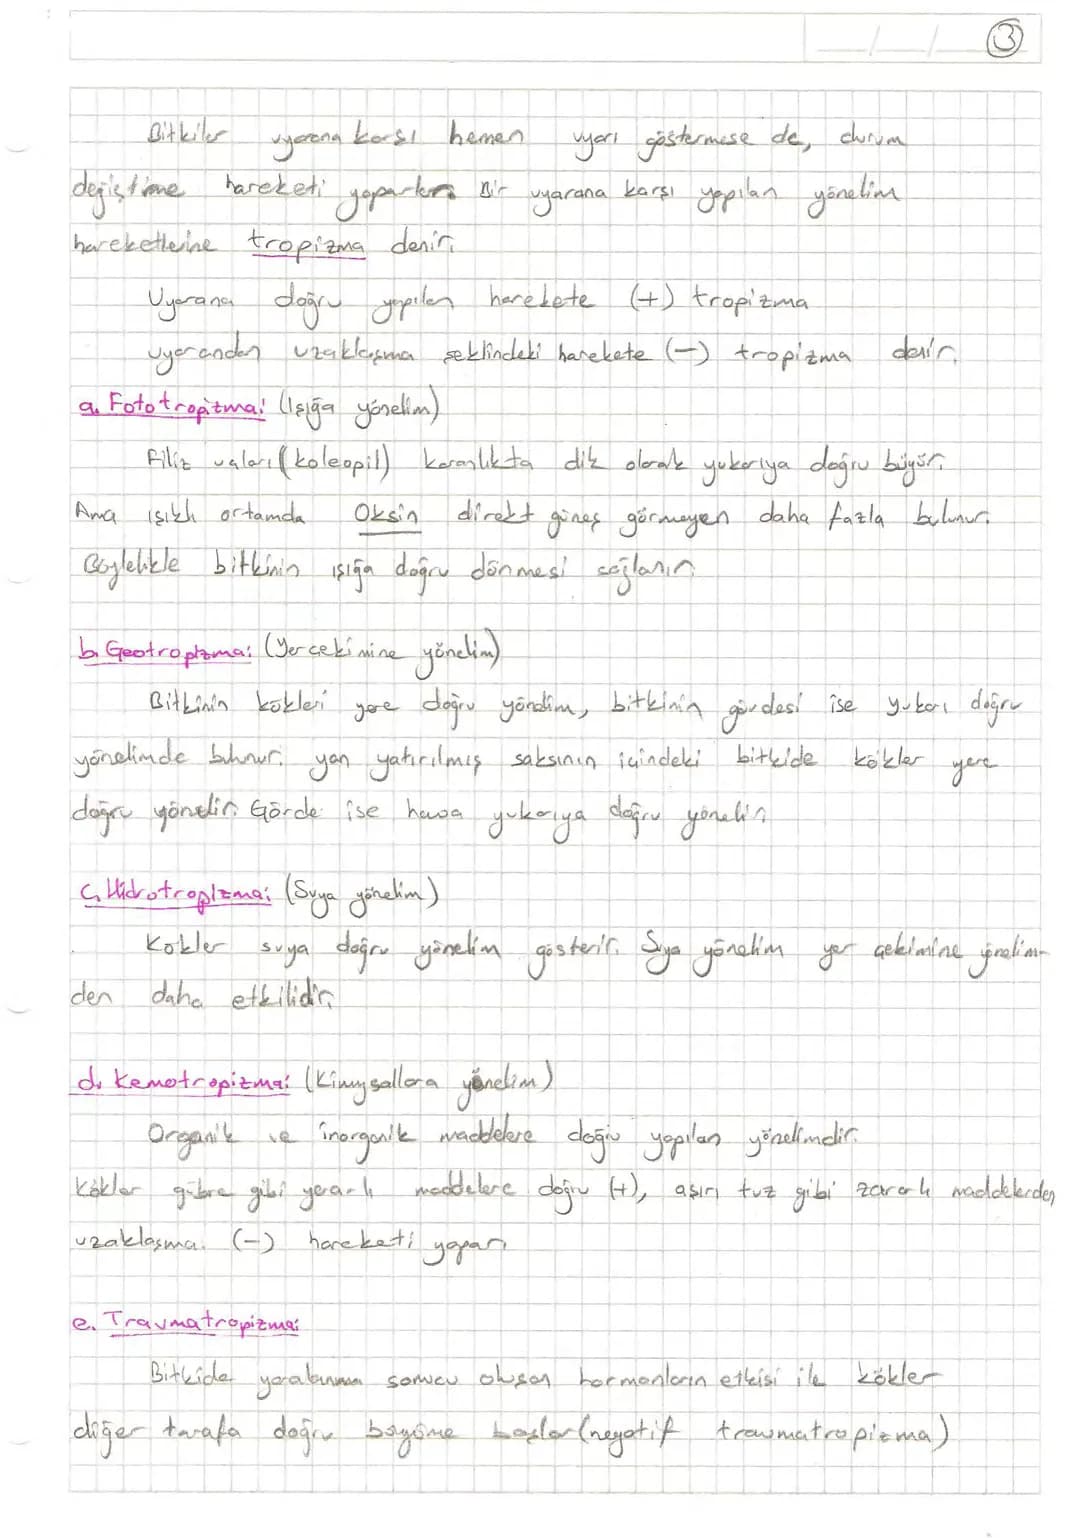 3
Bitkiler uyarana karşı hemen uyarı göstermese de, durum
değiştirme hareketi yaparlar. Bir uyarana karşı yapılan yönelim
hareketlerine tropizma denir.
Uyarana doğru yapılan harekete (+) tropizma
uyarandan uzaklaşma şeklindeki harekete (-) tropizma denir.
a. Fototropizma: (Işığa yönelim)
Filiz uçları (koleopil) karanlıkta dik olarak yukarıya doğru büyür.
Ama ışıklı ortamda Oksin direkt güneş görmeyen daha fazla bulunur.
Böylelikle bitkinin ışığa doğru dönmesi sağlanır.
b. Geotropizma: (Yer çekimine yönelim)
Bitkinin kökleri yere doğru yönelim, bitkinin gövdesi ise yukarı doğru
yönelimde bulunur. yan yatırılmış saksının içindeki bitkide kökler yere
doğru yönelir. Görde ise hava yukarıya doğru yönelir.
c. Hidrotropizma: (Suya yönelim)
Kökler suya doğru yönelim gösterir. Suya yönelim yer çekimine yönelim-
den daha etkilidir.
d. Kemotropizma: (Kimysallara yönelim)
Organik ve inorganik maddelere doğru yapılan yönelimdir.
Kökler gübre gibi yararlı maddelere doğru (+), aşırı tuz gibi zararlı maddelerden
uzaklaşma. (-) hareketi yapar.
e. Travmatropizma:
Bitkide yaralanma sonucu oluşan hormonların etkisi ile kökler
diğer tarafa doğru büyüme başlar (negatif travmatropizma)